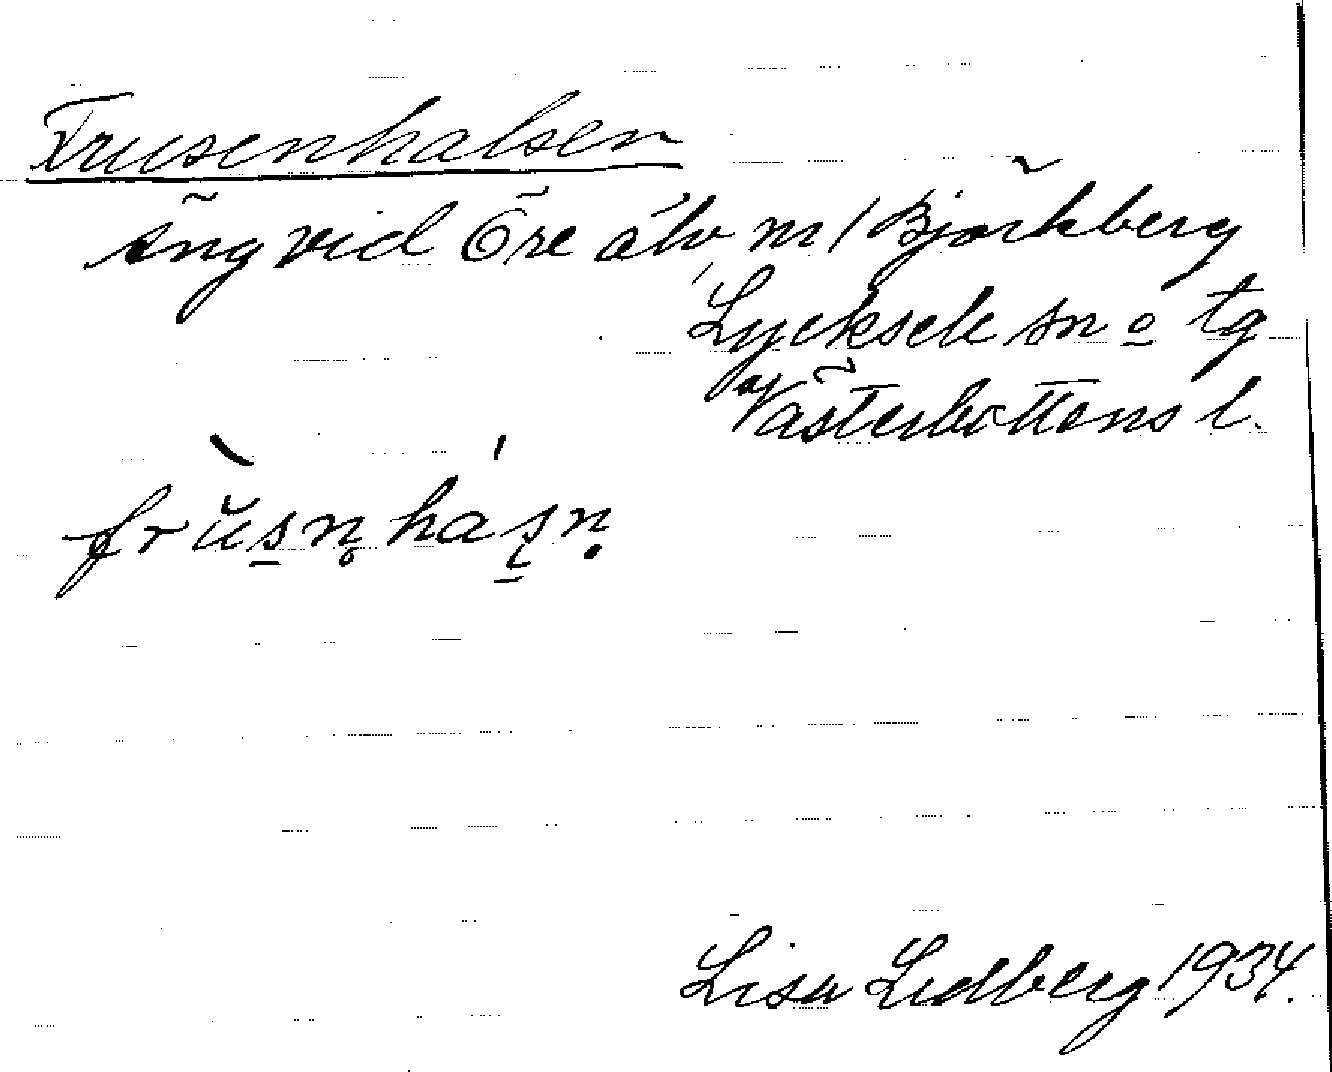 Frusenhalsen
äng vid Öre älv, m / Björkberg
Lycksele sn o tg
Västerbottens l.
frŭsn̥háṣṇ
Lisa Lidberg 1934.